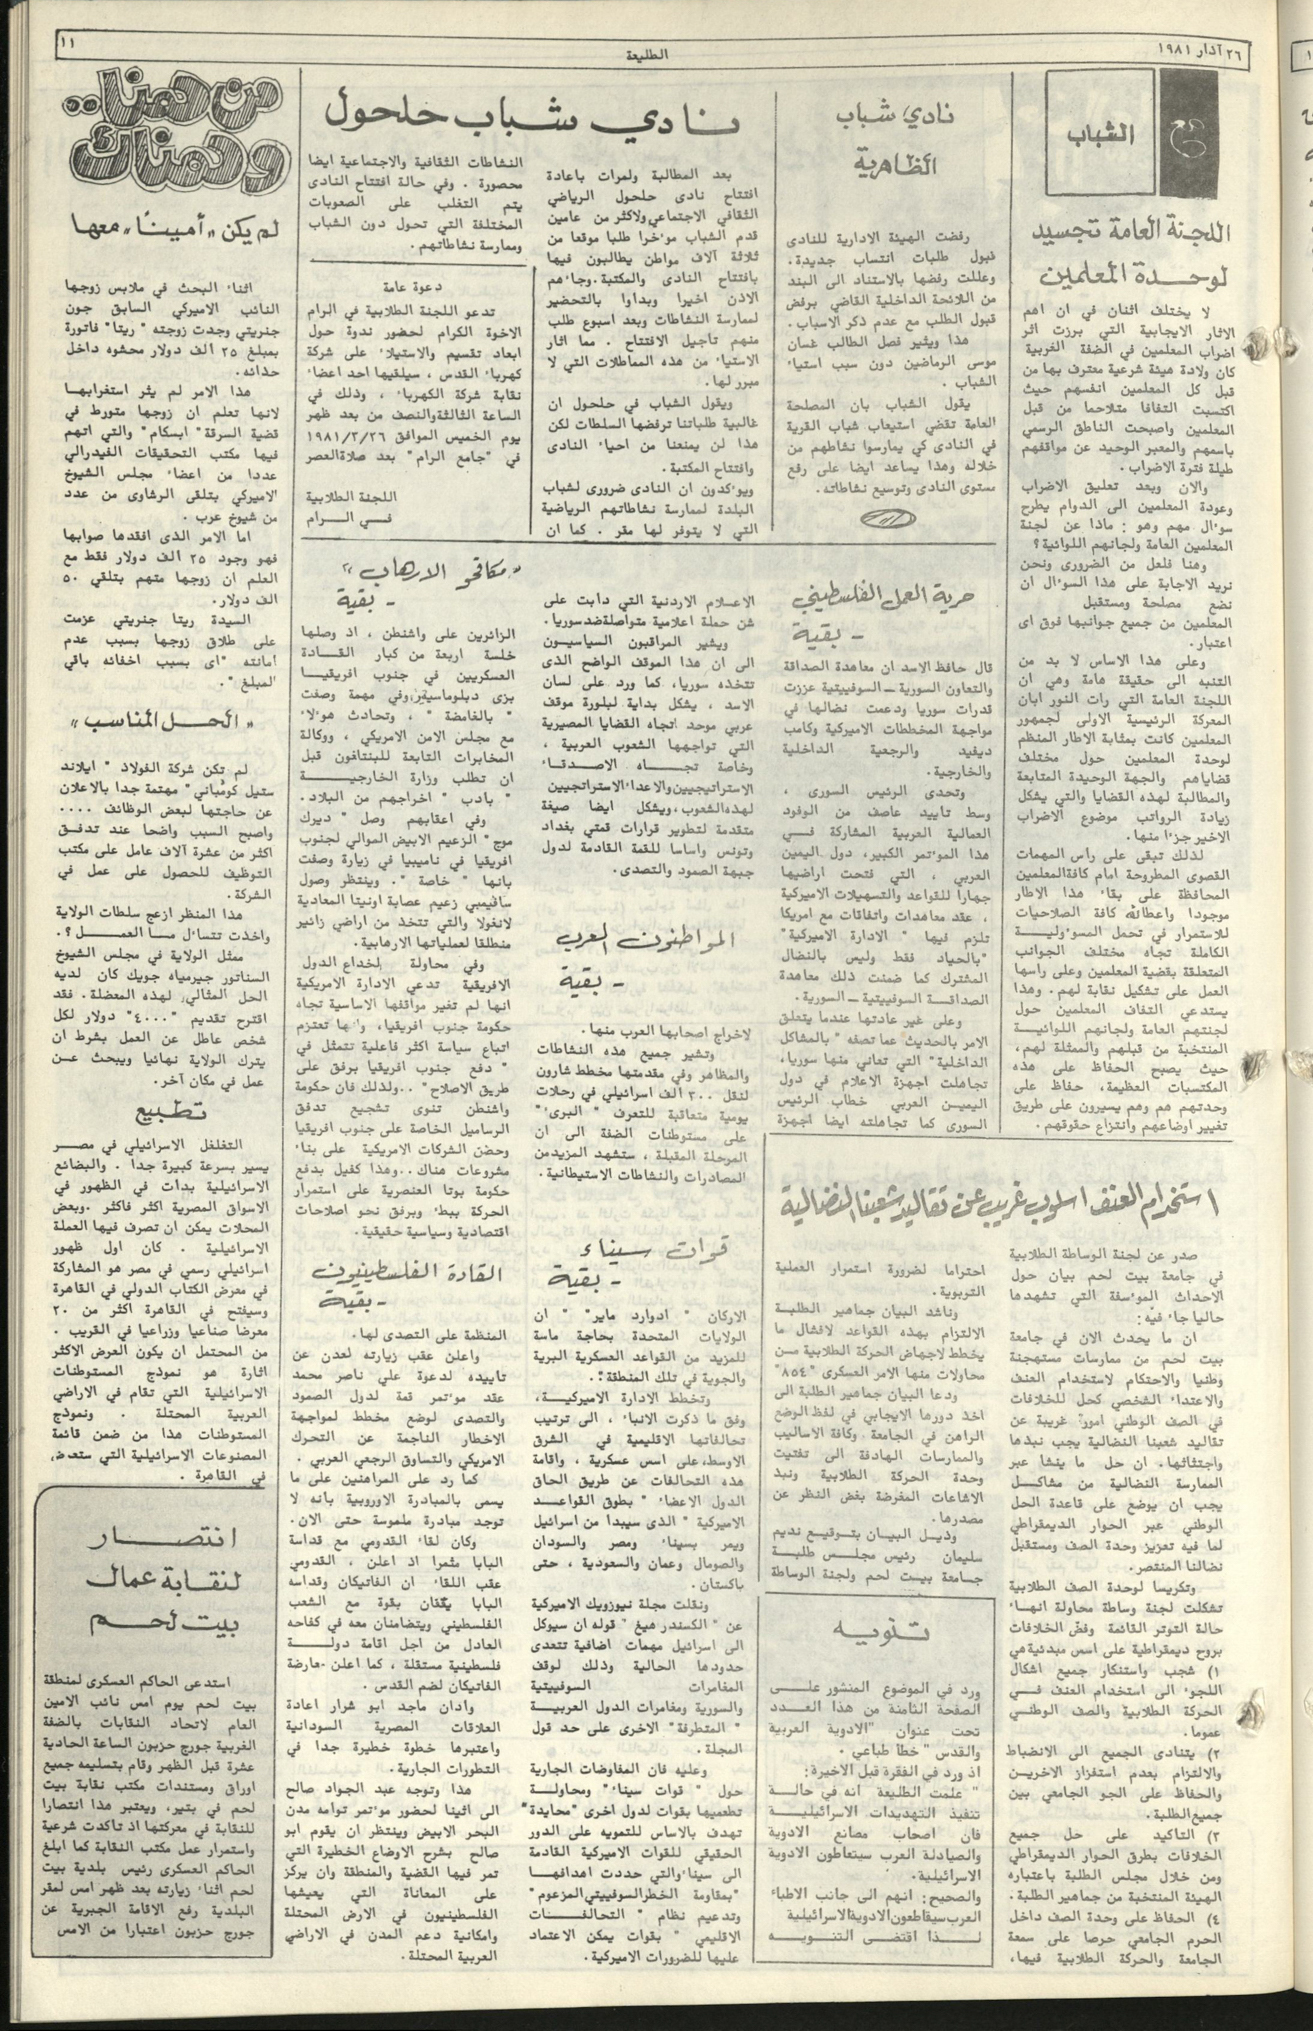 ٢٦ آذار ١٩٨١
الطليعة
١١
مع
الشباب
اللجنة العامة تجسيد
لوحدة المعلمين
لا يختلف اثنان في ان اهم
الاثار الايجابية التي برزت اثر
اضراب المعلمين في الضفة الغربية
كان ولادة هيئة شرعية معترف بها من
قبل كل المعلمين انفسهم حيث
اكتسبت التفافا متلاحما من قبل
المعلمين واصبحت الناطق الرسمي
باسمهم والمعبر الوحيد عن مواقفهم
طيلة فترة الاضراب .
والان وبعد تعليق الاضراب
وعودة المعلمين الى الدوام يطرح
سوءال مهم وهو : ماذا عن لجنة
المعلمين العامة ولجانهم اللوائية؟
وهنا فلعل من الضرورى ونحن
نريد الاجابة على هذا السوءال ان
نضع مصلحة ومستقبل
المعلمين من جميع جوانبها فوق اى
اعتبار.
وعلى هذا الاساس لا بد من
التنبه الى حقيقة هامة وهي ان
اللجنة العامة التي رات النور ابان
المعركة الرئيسية الاولى لجمهور
المعلمين كانت بمثابة الاطار المنظم
لوحدة المعلمين حول مختلف
قضاياهم والجهة الوحيدة المتابعة
والمطالبة لهذه القضايا والتي يشكل
زيادة الرواتب موضوع الاضراب
الاخير جزءا منها.
لذلك تبقى على راس المهمات
القصوى المطروحة امام كافة المعلمين
المحافظة على بقاء هذا الاطار
موجودا واعطائه كافة الصلاحيات
للاستمرار في تحمل المسوءولية
الكاملة تجاه مختلف الجوانب
المتعلقة بقضية المعلمين وعلى راسها
العمل على تشكيل نقابة لهم. وهذا
يستدعي التفاف المعلمين حول
لجنتهم العامة ولجانهم اللوائية
المنتخبة من قبلهم والممثلة لهم،
حيث يصبح الحفاظ على هذه
المكتسبات العظيمة، حفاظ على
وحدتهم هم وهم يسيرون على طريق
تغيير اوضاعهم وانتزاع حقوقهم.
نادي شباب
الظاهرية
رفضت الهيئة الادارية للنادى
قبول طلبات انتساب جديدة.
وعللت رفضها بالاستناد الى البند
من اللائحة الداخلية القاضي برفض
قبول الطلب مع عدم ذكر الاسباب.
هذا ويثير فصل الطالب غسان
موسى الرماضين دون سبب استياء
الشباب .
يقول الشباب بان المصلحة
العامة تقضي استيعاب شباب القرية
في النادى كي يمارسوا نشاطهم من
خلاله وهذا يساعد ايضا على رفع
مستوى النادى وتوسيع نشاطاته.
نادي شباب حلحول
بعد المطالبة ولمرات باعادة
افتتاح نادى حلحول الرياضي
الثقافي الاجتماعي ولاكثر من عامين
قدم الشباب موءخرا طلبا موقعا من
ثلاثة آلاف مواطن يطالبون فيها
بافتتاح النادى والمكتبة.وجاءهم
الاذن اخيرا وبداوا بالتحضير
لممارسة النشاطات وبعد اسبوع طلب
منهم تأجيل الافتتاح . مما اثار
الاستياء من هذه المماطلات التي لا
مبرر لها.
ويقول الشباب في حلحول ان
غالبية طلباتنا ترفضها السلطات لكن
هذا لن يمنعنا من احياء النادى
وافتتاح المكتبة.
ويوءكدون ان النادى ضرورى لشباب
البلدة لممارسة نشاطاتهم الرياضية
التي لا يتوفر لها مقر . كما ان
النشاطات الثقافية والاجتماعية ايضا
محصورة . وفي حالة افتتاح النادى
يتم التغلب على الصعوبات
المختلفة التي تحول دون الشباب
وممارسة نشاطاتهم.
دعوة عامة
تدعو اللجنة الطلابية في الرام
الاخوة الكرام لحضور ندوة حول
ابعاد تقسيم والاستيلاء على شركة
كهرباء القدس ، سيلقيها احد اعضاء
نقابة شركة الكهرباء ، وذلك في
الساعة الثالثة والنصف من بعد ظهر
يوم الخميس الموافق ١٩٨١/٣/٢٦
في "جامع الرام" بعد صلاة العصر
اللجنة الطلابية
في الرام
من هنا..
وهناك
لم يكن "أمينًا" معها
اثناء البحث في ملابس زوجها
النائب الاميركي السابق جون
جنريتي وجدت زوجته "ريتا" فاتورة
بمبلغ ٢٥ الف دولار محشوه داخل
حذائه.
هذا الامر لم يثر استغرابها
لانها تعلم ان زوجها متورط في
قضية السرقة "ابسكام" والتي اتهم
فيها مكتب التحقيقات الفيدرالي
عددا من اعضاء مجلس الشيوخ
الاميركي بتلقى الرشاوى من عدد
من شيوخ عرب .
اما الامر الذى افقدها صوابها
فهو وجود ٢٥ الف دولار فقط مع
العلم ان زوجها متهم بتلقي ٥٠
الف دولار.
السيدة ريتا جنريتي عزمت
على طلاق زوجها بسبب عدم
أمانته "اى بسبب اخفائه باقي
المبلغ".
"الحل المناسب"
لم تكن شركة الفولاذ " ايلاند
ستيل كومباني" مهتمة جدا بالاعلان
عن حاجتها لبعض الوظائف ....
واصبح السبب واضحا عند تدفق
اكثر من عشرة آلاف عامل على مكتب
التوظيف للحصول على عمل في
الشركة.
هذا المنظر ازعج سلطات الولاية
واخذت تتساءل ما العمل ؟.
ممثل الولاية في مجلس الشيوخ
السناتور جيرمياه جويك كان لديه
الحل المثالي لهذه المعضلة. فقد
اقترح تقديم "٤٠٠٠" دولار لكل
شخص عاطل عن العمل بشرط ان
يترك الولاية نهائيا ويبحث عن
عمل في مكان آخر.
تطبيع
التغلغل الاسرائيلي في مصر
يسير بسرعة كبيرة جدا . والبضائع
الاسرائيلية بدأت في الظهور في
الاسواق المصرية اكثر فاكثر .وبعض
المحلات يمكن ان تصرف فيها العملة
الاسرائيلية . كان اول ظهور
اسرائيلي رسمي في مصر هو المشاركة
في معرض الكتاب الدولي في القاهرة
وسيفتح في القاهرة اكثر من ٢٠
معرضا صناعيا وزراعيا في القريب .
من المحتمل ان يكون العرض الاكثر
اثارة هو نموذج المستوطنات
الاسرائيلية التي تقام في الاراضي
العربية المحتلة . ونموذج
المستوطنات هذا من ضمن قائمة
المصنوعات الاسرائيلية التي ستعرض
في القاهرة .
انتصار
لنقابة عمال
بيت لحم
استدعى الحاكم العسكرى لمنطقة
بيت لحم يوم امس نائب الامين
العام لاتحاد النقابات بالضفة
الغربية جورج حزبون الساعة الحادية
عشرة قبل الظهر وقام بتسليمه جميع
اوراق ومستندات مكتب نقابة بيت
لحم في بتير، ويعتبر هذا انتصارا
للنقابة في معركتها اذ تأكدت شرعية
واستمرار عمل مكتب النقابة كما ابلغ
الحاكم العسكرى رئيس بلدية بيت
لحم اثناء زيارته بعد ظهر امس لمقر
البلدية رفع الاقامة الجبرية عن
جورج حزبون اعتبارا من الامس
حرية العمل الفلسطيني
- بقية
قال حافظ الاسد ان معاهدة الصداقة
والتعاون السورية ــ السوفييتية عززت
قدرات سوريا ودعمت نضالها في
مواجهة المخططات الاميركية وكامب
ديفيد والرجعية الداخلية
والخارجية.
وتحدى الرئيس السورى ،
وسط تأييد عاصف من الوفود
العمالية العربية المشاركة في
هذا الموءتمر الكبير، دول اليمين
العربي ، التي فتحت اراضيها
جهارا للقواعد والتسهيلات الاميركية
، عقد معاهدات واتفاقات مع امريكا
تلزم فيها " الادارة الاميركية"
"بالحياد فقط وليس بالنضال
المشترك كما ضمنت ذلك معاهدة
الصداقة السوفييتية ــ السورية.
وعلى غير عادتها عندما يتعلق
الامر بالحديث عما تصفه "بالمشاكل
الداخلية" التي تعاني منها سوريا،
تجاهلت اجهزة الاعلام في دول
اليمين العربي خطاب الرئيس
السورى كما تجاهلته ايضا اجهزة
الاعلام الاردنية التي دابت على
شن حملة اعلامية متواصلة ضد سوريا.
ويشير المراقبون السياسيون
الى ان هذا الموقف الواضح الذى
تتخذه سوريا، كما ورد على لسان
الاسد ، يشكل بداية لبلورة موقف
عربي موحد اتجاه القضايا المصيرية
التي تواجهها الشعوب العربية ،
وخاصة تجاه الاصدقاء
الاستراتيجيين والاعداء الاستراتيجيين
لهذه الشعوب، ويشكل ايضا صيغة
متقدمة لتطوير قرارات قمتي بغداد
وتونس واساسا للقمة القادمة لدول
جبهة الصمود والتصدى.
المواطنون العرب
- بقية
لاخراج اصحابها العرب منها.
وتشير جميع هذه النشاطات
والمظاهر وفي مقدمتها مخطط شارون
لنقل ٣٠٠ الف اسرائيلي في رحلات
يومية متعاقبة للتعرف "البرىء"
على مستوطنات الضفة الى ان
المرحلة المقبلة ، ستشهد المزيد من
المصادرات والنشاطات الاستيطانية.
قوات سيناء
- بقية
الاركان " ادوارد ماير" " ان
الولايات المتحدة بحاجة ماسة
للمزيد من القواعد العسكرية البرية
والجوية في تلك المنطقة".
وتخطط الادارة الاميركية،
وفق ما ذكرت الانباء ، الى ترتيب
تحالفاتها الاقليمية في الشرق
الاوسط، على اسس عسكرية ، واقامة
هذه التحالفات عن طريق الحاق
الدول الاعضاء " بطوق القواعد
الاميركية " الذى سيبدأ من اسرائيل
ويمر بسيناء ومصر والسودان
والصومال وعمان والسعودية ، حتى
باكستان.
ونقلت مجلة نيوزويك الاميركية
عن " الكسندر هيغ " قوله ان سيوكل
الى اسرائيل مهمات اضافية تتعدى
حدودها الحالية وذلك لوقف
المغامرات السوفييتية
والسورية ومغامرات الدول العربية
" المتطرفة " الاخرى على حد قول
المجلة.
وعليه فان المفاوضات الجارية
حول " قوات سيناء" ومحاولة
تطعيمها بقوات لدول اخرى "محايدة"
تهدف بالاساس للتمويه على الدور
الحقيقي للقوات الاميركية القادمة
الى سيناء والتي حددت اهدافها
"بمقاومة الخطر السوفييتي المزعوم"
وتدعيم نظام " التحالفات
الاقليمي " بقوات يمكن الاعتماد
عليها للضرورات الاميركية.
"مكافحو الارهاب"
- بقية
الزائرين على واشنطن ، اذ وصلها
خلسة اربعة من كبار القادة
العسكريين في جنوب افريقيا
بزى دبلوماسيين، وفي مهمة وصفت
" بالغامضة " ، وتحادث هوءلاء
مع مجلس الامن الامريكي ، ووكالة
المخابرات التابعة للبنتاغون قبل
ان تطلب وزارة الخارجية
" بادب " اخراجهم من البلاد.
وفي اعقابهم وصل " ديرك
موج" الزعيم الابيض الموالي لجنوب
افريقيا في ناميبيا في زيارة وصفت
بانها " خاصة ". وينتظر وصول
سافيمبي زعيم عصابة اونيتا المعادية
لانغولا والتي تتخذ من اراضي زائير
منطلقا لعملياتها الارهابية.
وفي محاولة لخداع الدول
الافريقية تدعي الادارة الامريكية
انها لم تغير مواقفها الاساسية تجاه
حكومة جنوب افريقيا، وانها تعتزم
اتباع سياسة اكثر فاعلية تتمثل في
" دفع جنوب افريقيا برفق على
طريق الاصلاح" ..ولذلك فان حكومة
واشنطن تنوى تشجيع تدفق
الرساميل الخاصة على جنوب افريقيا
وحضن الشركات الامريكية على بناء
مشروعات هناك ..وهذا كفيل بدفع
حكومة بوتا العنصرية على استمرار
الحركة ببطء وبرفق نحو اصلاحات
اقتصادية وسياسية حقيقية.
القادة الفلسطينيون
- بقية
المنظمة على التصدى لها.
واعلن عقب زيارته لعدن عن
تاييده لدعوة علي ناصر محمد
عقد موءتمر قمة لدول الصمود
والتصدى لوضع مخطط لمواجهة
الاخطار الناجمة عن التحرك
الامريكي والتساوق الرجعي العربي .
كما رد على المراهنين على ما
يسمى بالمبادرة الاوروبية بأنه لا
توجد مبادرة ملموسة حتى الان.
وكان لقاء القدومي مع قداسة
البابا مثمرا اذ اعلن ، القدومي
عقب اللقاء ان الفاتيكان وقداسه
البابا يقفان بقوة مع الشعب
الفلسطيني ويتضامنان معه في كفاحه
العادل من اجل اقامة دولة
فلسطينية مستقلة ، كما اعلن معارضة
الفاتيكان لضم القدس .
وادان ماجد ابو شرار اعادة
العلاقات المصرية السودانية
واعتبرها خطوة خطيرة جدا في
التطورات الجارية.
هذا وتوجه عبد الجواد صالح
الى اثينا لحضور موءتمر توأمه مدن
البحر الابيض وينتظر ان يقوم ابو
صالح بشرح الاوضاع الخطيرة التي
تمر فيها القضية والمنطقة وان يركز
على المعاناة التي يعيشها
الفلسطينيون في الارض المحتلة
وامكانية دعم المدن في الاراضي
العربية المحتلة.
استخدام العنف اسلوب غريب عن تقاليد شعبنا النضالية
صدر عن لجنة الوساطة الطلابية
في جامعة بيت لحم بيان حول
الاحداث الموءسفة التي تشهدها
حاليا جاء فيه:
ان ما يحدث الان في جامعة
بيت لحم من ممارسات مستهجنة
وطنيا والاحتكام لاستخدام العنف
والاعتداء الشخصي كحل للخلافات
في الصف الوطني امور غريبة عن
تقاليد شعبنا النضالية يجب نبذها
واجتثاثها. ان حل ما ينشا عبر
الممارسة النضالية من مشاكل
يجب ان يوضع على قاعدة الحل
الوطني عبر الحوار الديمقراطي
لما فيه تعزيز وحدة الصف ومستقبل
نضالنا المنتصر.
وتكريسا لوحدة الصف الطلابية
تشكلت لجنة وساطة محاولة انهاء
حالة التوتر القائمة وفض الخلافات
بروح ديمقراطية على اسس مبدئية هي
١) شجب واستنكار جميع اشكال
اللجوء الى استخدام العنف في
الحركة الطلابية والصف الوطني
عموما.
٢) يتنادى الجميع الى الانضباط
والالتزام بعدم استفزاز الاخرين
والحفاظ على الجو الجامعي بين
جميع الطلبة.
٣) التاكيد على حل جميع
الخلافات بطرق الحوار الديمقراطي
ومن خلال مجلس الطلبة باعتباره
الهيئة المنتخبة من جماهير الطلبة.
٤) الحفاظ على وحدة الصف داخل
الحرم الجامعي حرصا على سمعة
الجامعة والحركة الطلابية فيها،
احتراما لضرورة استمرار العملية
التربوية.
وناشد البيان جماهير الطلبة
الالتزام بهذه القواعد لافشال ما
يخطط لاجهاض الحركة الطلابية من
محاولات منها الامر العسكرى "٨٥٤"
ودعا البيان جماهير الطلبة الى
اخذ دورها الايجابي في لفظ الوضع
الراهن في الجامعة وكافة الاساليب
والممارسات الهادفة الى تفتيت
وحدة الحركة الطلابية ونبذ
الاشاعات المغرضة بغض النظر عن
مصدرها.
وذيل البيان بتوقيع نديم
سليمان رئيس مجلس طلبة
جامعة بيت لحم ولجنة الوساطة
تنويه
ورد في الموضوع المنشور على
الصفحة الثامنة من هذا العدد
تحت عنوان "الادوية العربية
والقدس " خطأ طباعي .
اذ ورد في الفقرة قبل الاخيرة:
" علمت الطليعة انه في حالة
تنفيذ التهديدات الاسرائيلية
فان اصحاب مصانع الادوية
والصيادلة العرب سيتعاطون الادوية
الاسرائيلية.
والصحيح: انهم الى جانب الاطباء
العرب سيقاطعون الادوية الاسرائيلية
لذا اقتضى التنويه